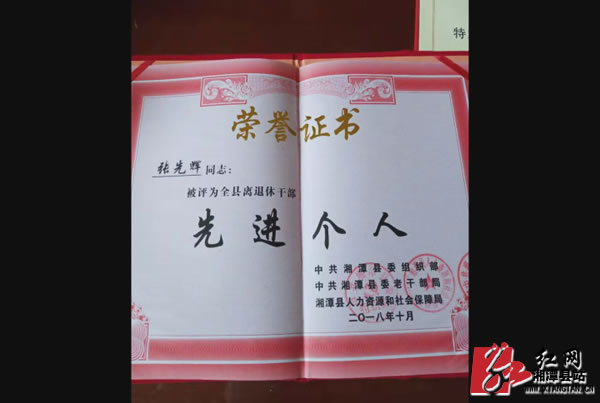 特
荣誉证书
张先辉同志:
被评为全县离退休干部
先进个人
中共湘潭县委组织部
中共湘潭县委老干部局
湘潭县人力资源和社会保障局
二〇一八年十月
红网
湘潭县站
WWW.XTANGTAN.CN